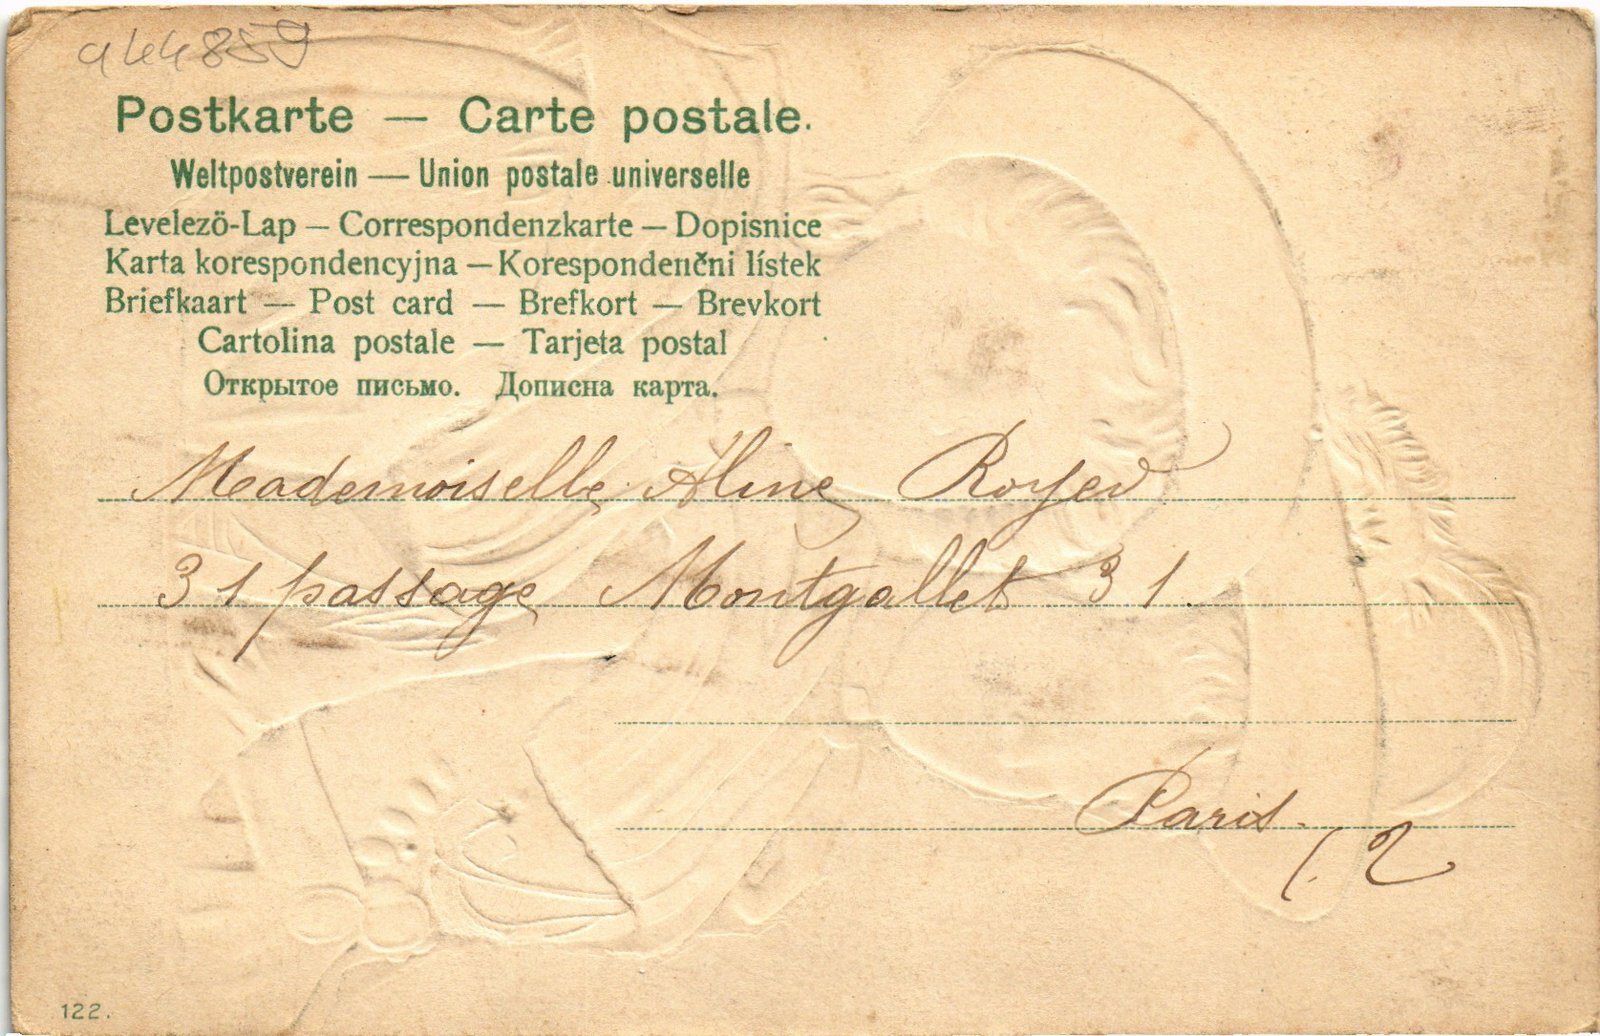 944859
Postkarte — Carte postale.
Weltpostverein — Union postale universelle
Levelezö-Lap — Correspondenzkarte — Dopisnice
Karta korespondencyjna — Korespondenčni lístek
Briefkaart — Post card — Brefkort — Brevkort
Cartolina postale — Tarjeta postal
Открытое письмо. Дописна карта.
Mademoiselle Aline Royer
31 passage Montgallet 31.
Paris.
12
122.